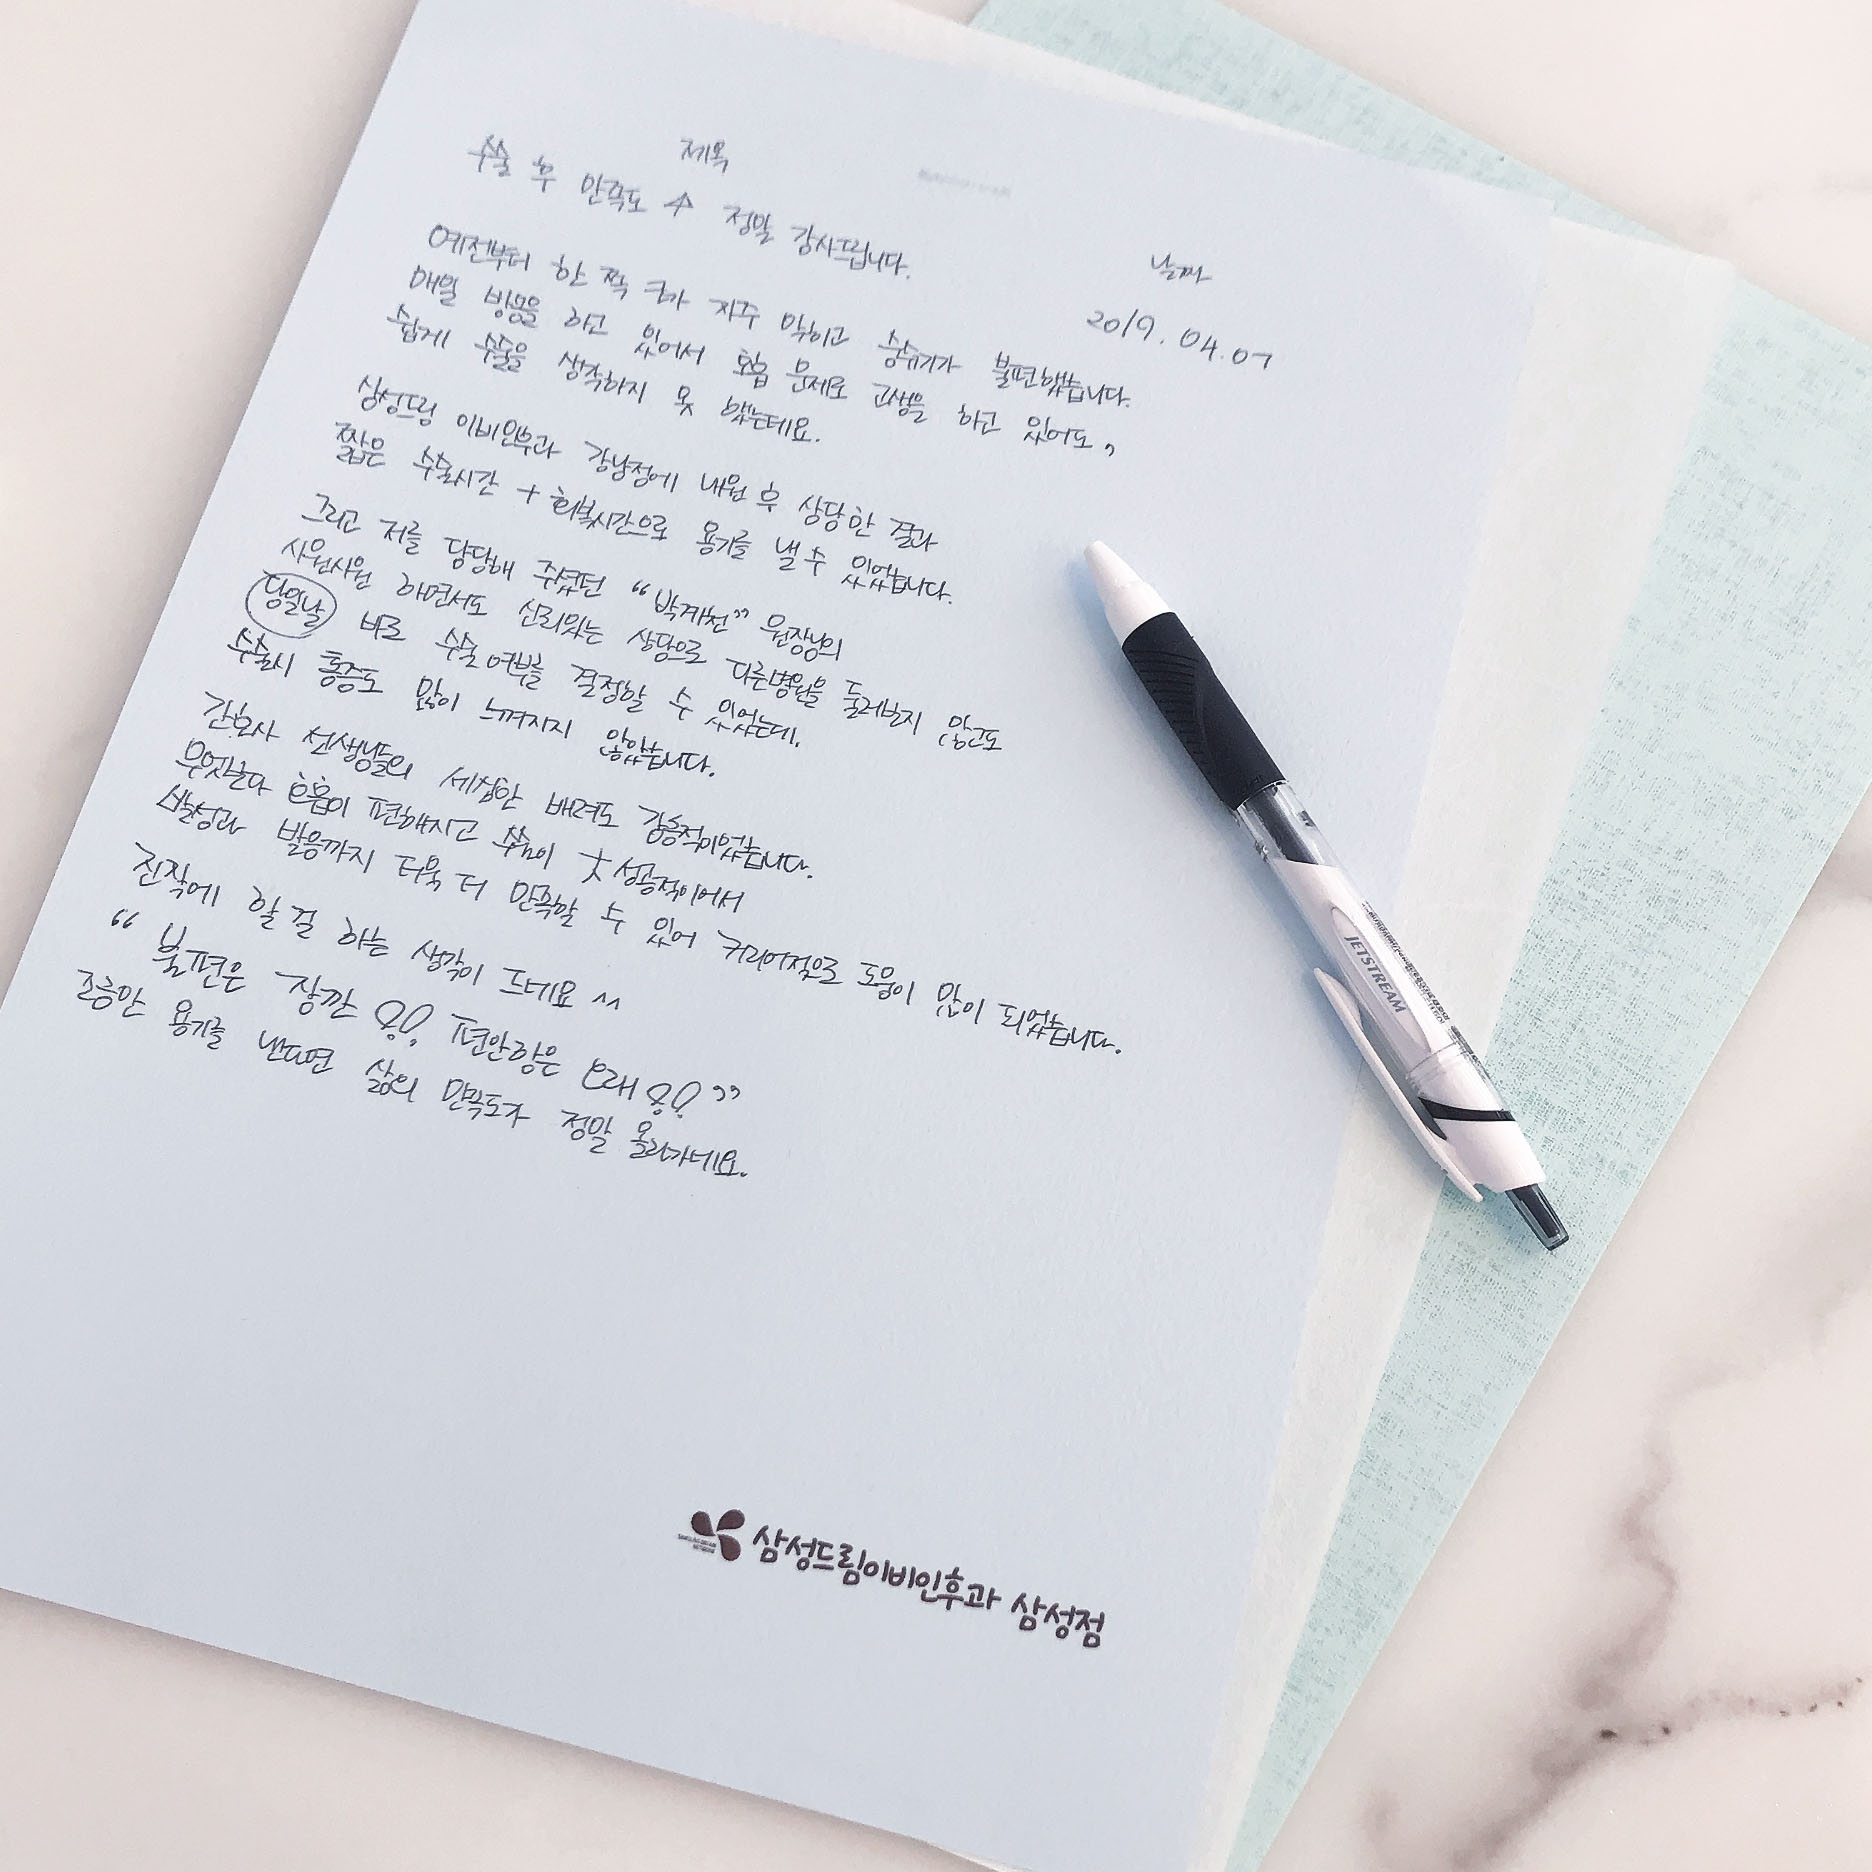 제목
수술 후 만족도 ↑ 정말 감사드립니다.
날짜
2019. 04. 07
예전부터 한 쪽 코가 자주 막히고 숨쉬기가 불편했습니다.
매일 방송을 하고 있어서 호흡 문제로 고생을 하고 있어도,
쉽게 수술을 생각하지 못 했는데요.
삼성드림 이비인후과 강남점에 내원 후 상담한 결과
짧은 수술시간 + 회복시간으로 용기를 낼 수 있었습니다.
그리고 저를 담당해 주셨던 " " 원장님의
시원시원 하면서도 신뢰있는 상담으로 다른병원을 둘러보지 않고도
당일날 바로 수술 여부를 결정할 수 있었는데,
수술시 통증도 많이 느껴지지 않았습니다.
간호사 선생님들의 세심한 배려도 감동적이었습니다.
무엇보다 호흡이 편해지고 수술이 大성공적이어서
발성과 발음까지 더욱 더 만족할 수 있어 커리어적으로 도움이 많이 되었습니다.
진작에 할 걸 하는 생각이 드네요 ^^
" 불편은 잠깐 !! 편안함은 오래 !! "
조금만 용기를 낸다면 삶의 만족도가 정말 올라가네요.
JETSTREAM
삼성드림이비인후과 삼성점